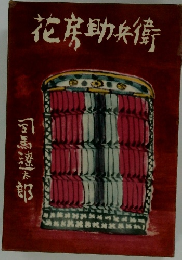 花房助兵衛
司馬遼太郎